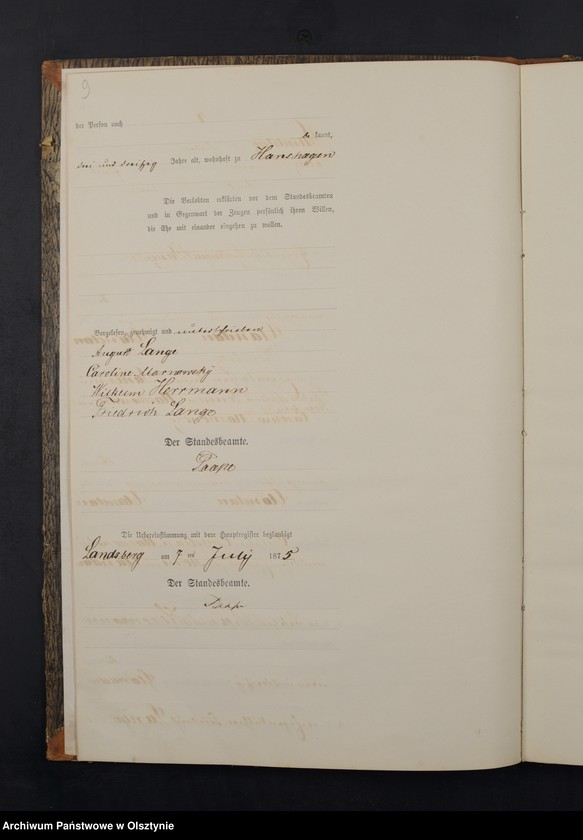 9
der Person nach
be kannt,
drei und dreißig Jahre alt, wohnhaft zu Hanshagen
Die Verlobten erklärten vor dem Standesbeamten
und in Gegenwart der Zeugen persönlich ihren Willen,
die Ehe mit einander eingehen zu wollen.
Vorgelesen, genehmigt und unterschrieben
August Lange
Caroline Marnowsky
Wilhelm Herrmann
Friedrich Lange
Der Standesbeamte.
Paape
Die Uebereinstimmung mit dem Hauptregister beglaubigt
Landsberg am 7 ten July 1875
Der Standesbeamte.
Paape
Archiwum Państwowe w Olsztynie